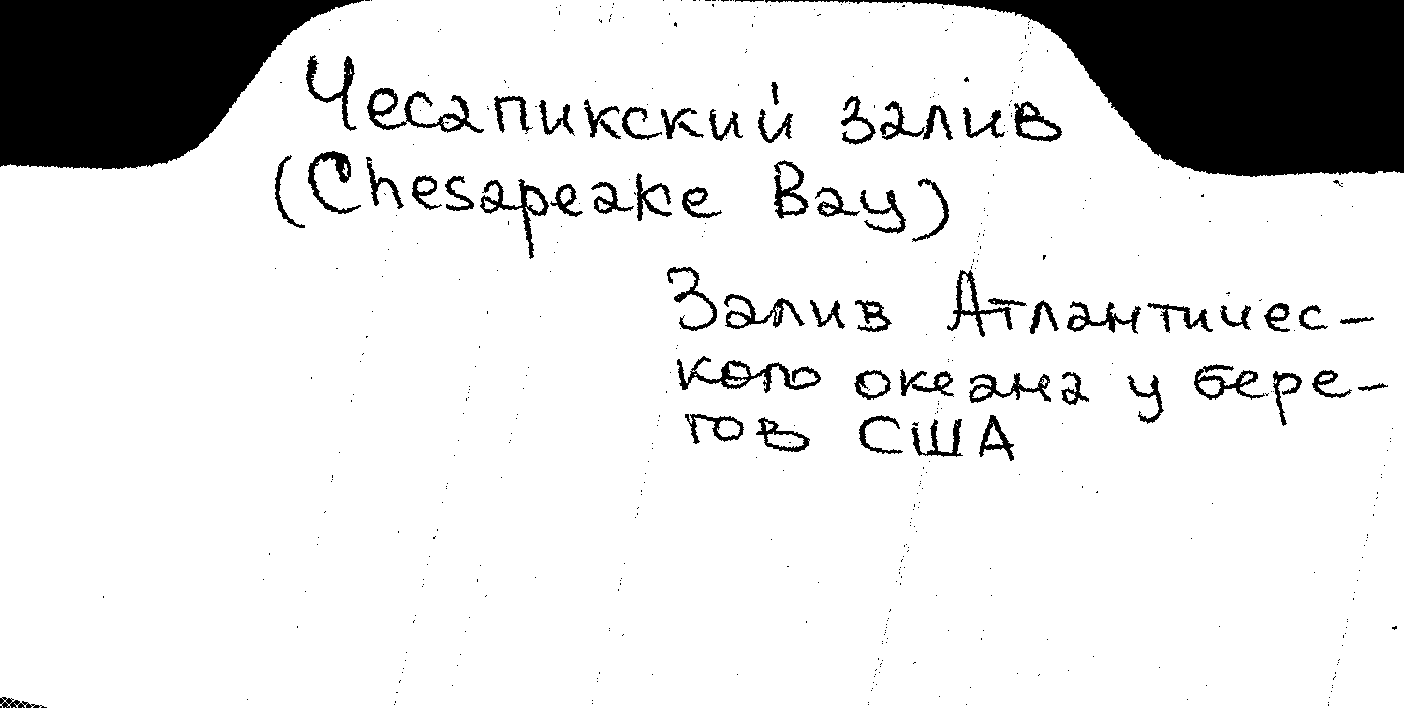 Чесапикский залив
(Chesapeake Bay)
Залив Атлантичес-
кого океана у бере-
гов США